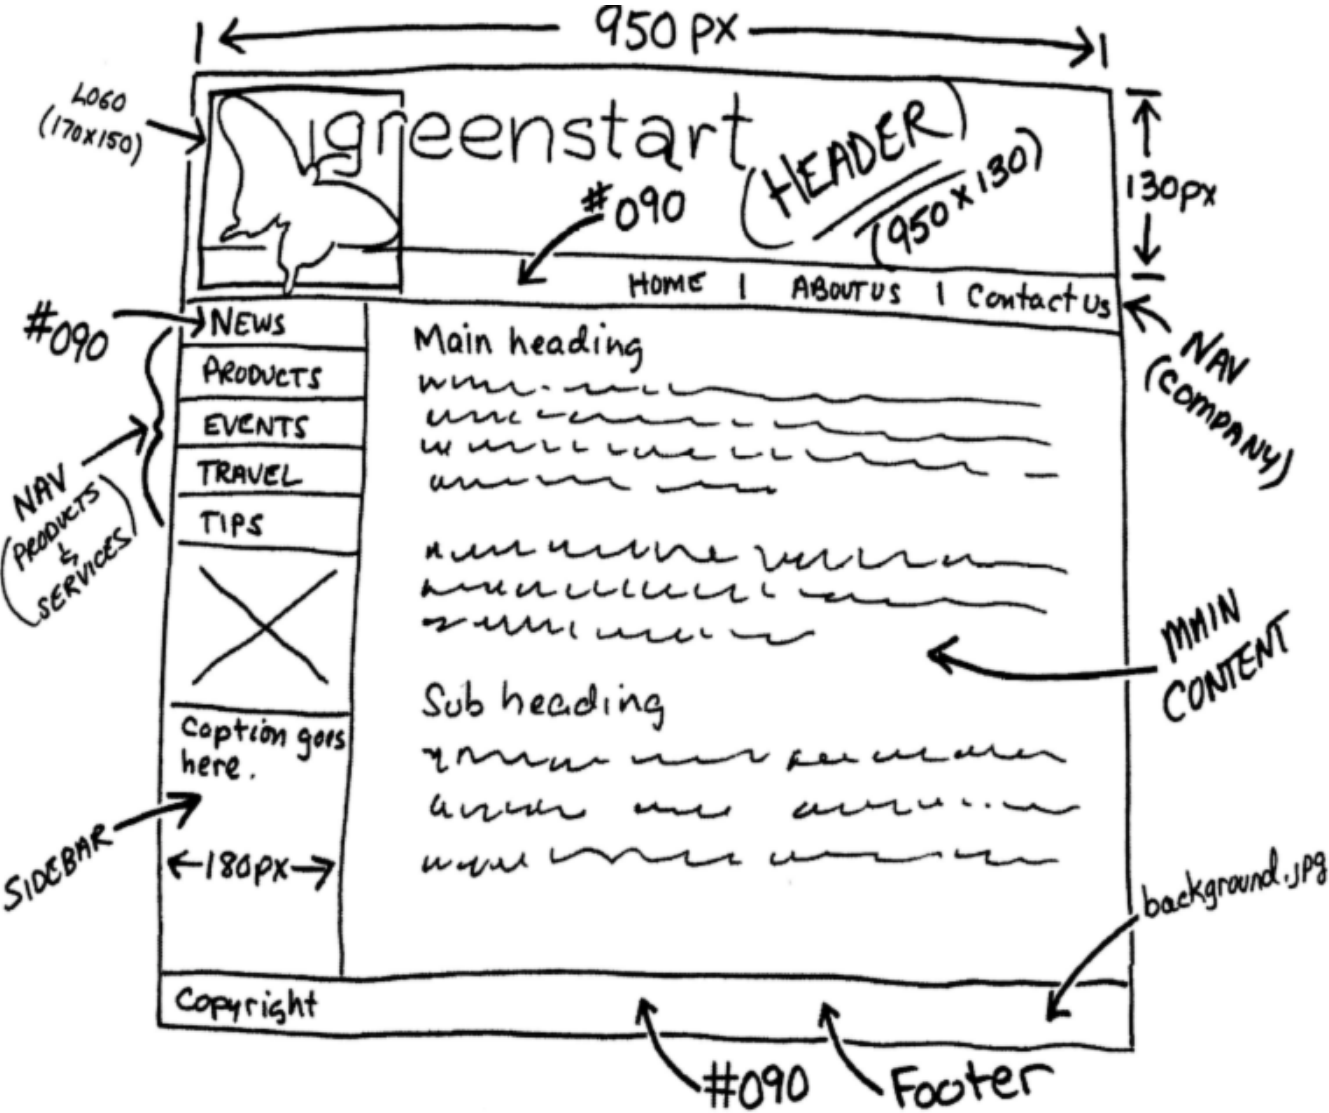 950 PX
LOGO
(170x150)
greenstart
(HEADER)
(950 x 130)
130px
#090
HOME | ABOUT US | Contact Us
#090
NEWS
PRODUCTS
EVENTS
TRAVEL
TIPS
NAV
(PRODUCTS
&
SERVICES)
NAV
(COMPANY)
Main heading
MAIN
CONTENT
Sub heading
Caption goes
here.
SIDEBAR
180px
background.jpg
Copyright
#090
Footer